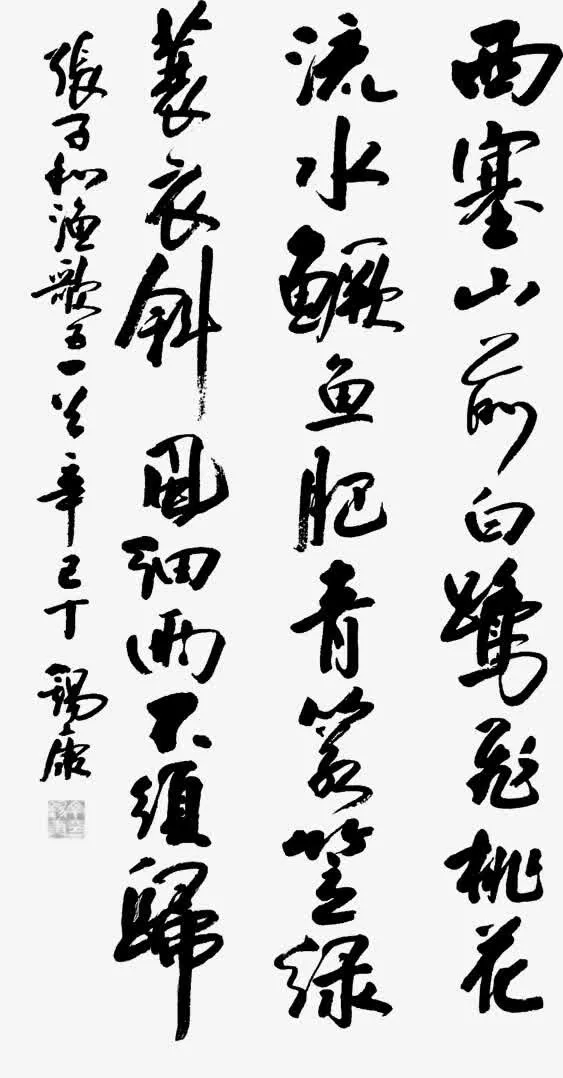 西塞山前白鹭飞桃花
流水鳜鱼肥青箬笠绿
蓑衣斜風细雨不须歸
張子和渔歌五一首辛巳丁錫康